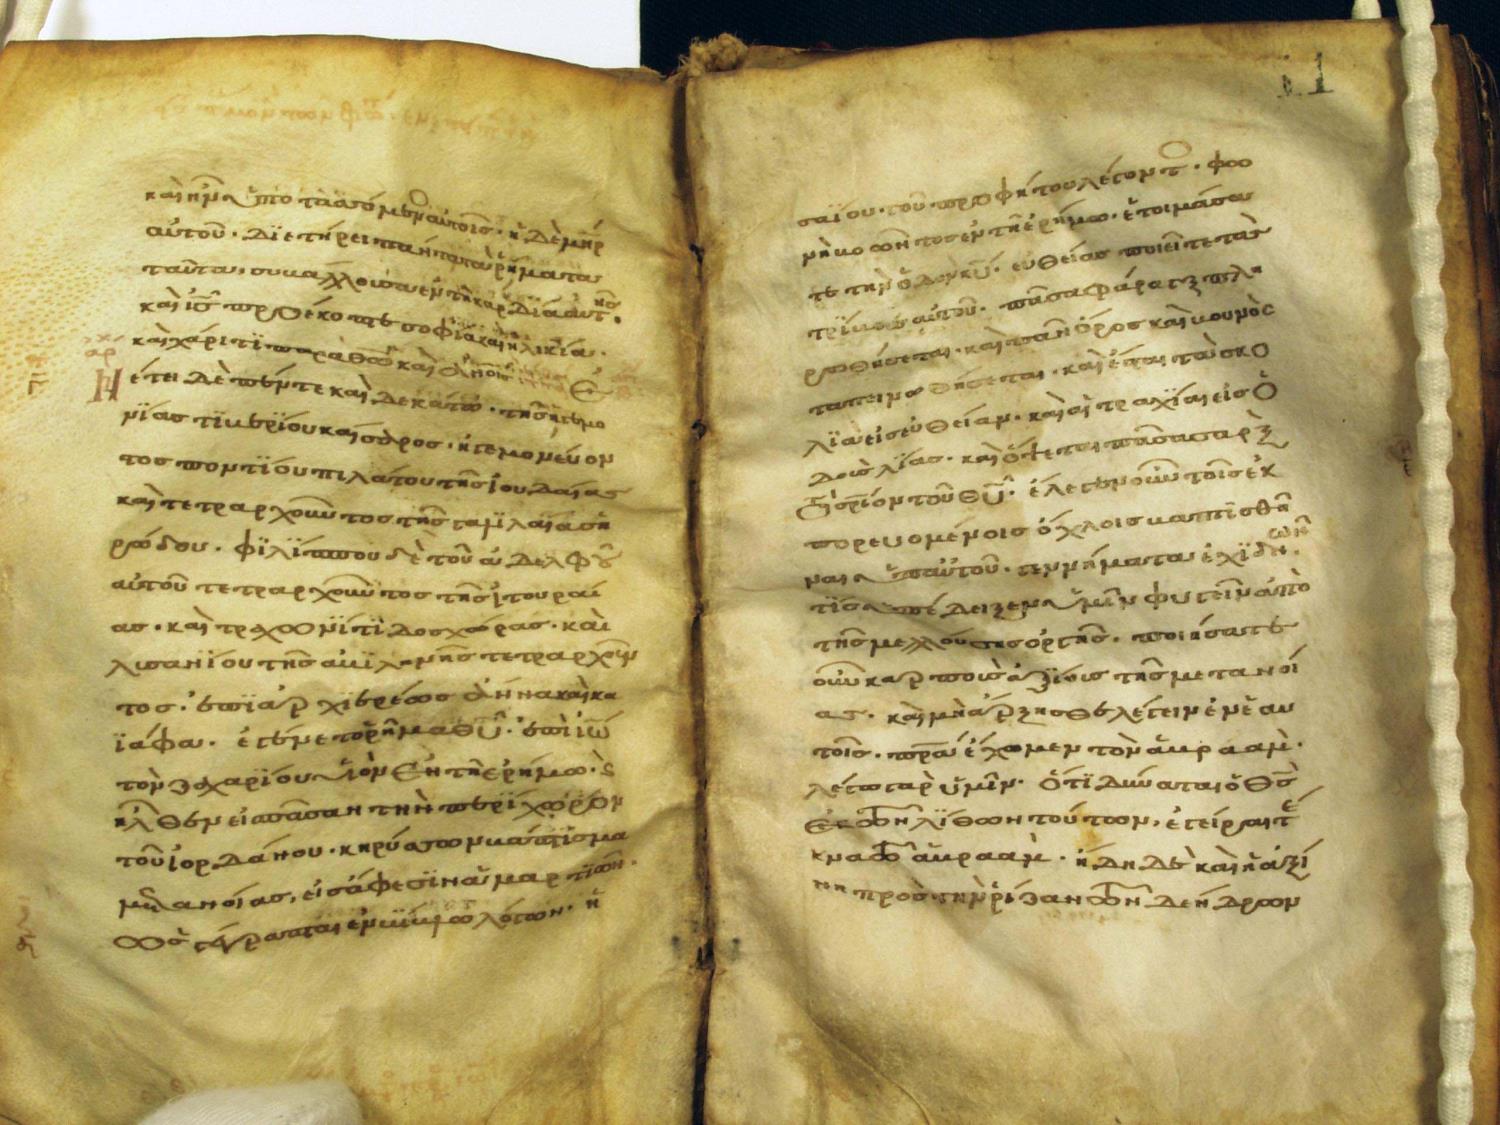 καὶ ἦν ὑποτασσόμενος αὐτοῖς· ἡ δὲ μήρ
αὐτοῦ· διετήρει πάντα τὰ ῥήματα
ταῦτα, συμβάλλουσα ἐν τῆ καρδία αὐτῆς·
καὶ ις προέκοπτε σοφία καὶ ἡλικία·
καὶ χάριτι παρὰ θω καὶ ἀνοις
Ἐν
ἔτει δὲ πέντε και δεκάτω· τῆς ἡγεμο
νίας τιβερίου καίσαρος· ἡγεμονεύον
τος ποντίου πιλάτου τῆς ἰουδαίας
καὶ τετραρχοῦντος τῆς γαλιλαίας ἡ
ρώδου· φιλίππου δὲ τοῦ ἀδελφοῦ
αὐτοῦ τετραρχοῦντος τῆς ἰτουραί
ας· καὶ τραχωνίτιδος χώρας· καὶ
λυσανίου τῆς ἀβιληνῆς τετραρχοῦν
τος· ἐπὶ ἀρχιερέως ἄννα καὶ κα
ϊάφα· ἐγένετο ῥῆμα θυ· ἐπὶ ἰω
τὸν ζαχαρίου υἱὸν ἐν τῆ ἐρήμω· καὶ
ἦλθεν εἰς πᾶσαν τὴν περίχωρον
τοῦ ἰορδάνου· κηρύσσων βάπτισμα
μετανοίας, εἰς ἄφεσιν ἁμαρτιῶν·
ὡς γέγραπται ἐν βίβλω λόγων· ἠ
11
σαΐου· τοῦ προφήτου λέγοντος· φω
νὴ βοῶντος ἐν τῆ ἐρήμω· ἑτοιμάσα
τε τὴν ὁδὸν κυ· εὐθείας ποιεῖτε τὰς
τρίβους αὐτοῦ· πᾶσα φάραγξ πλη
ρωθήσεται· καὶ πᾶν ὄρος καὶ βουνὸς
ταπεινωθήσεται· καὶ ἔσται τὰ σκο
λιὰ εἰς εὐθείαν· καὶ αἱ τραχίαι εἰς ὁ
δοὺς λίας· καὶ ὄψεται πᾶσα σὰρξ
τὸ σριον τοῦ θυ· ἔλεγεν οὖν τοῖς ἐκ
πορευομένοις ὄχλοις βαπτισθῆ
ναι ὑπ' αὐτοῦ· γεννήματα ἐχιδνῶν·
τίς ὑπέδειξεν ὑμῖν φυγεῖν ἀπὸ
τῆς μελλούσης ὀργῆς· ποιήσατε
οὖν καρποὺς ἀξίους τῆς μετανοί
ας· καὶ μὴ ἄρξησθε λέγειν ἐν ἑαυ
τοῖς· πρα ἔχωμεν τὸν ἀβραάμ·
λέγω γὰρ ὑμῖν· ὅτι δύναται ὁ θς
ἐκ τῶν λίθων τούτων, ἐγεῖραι τέ
κνα τῶ ἀβραάμ· ἤδη δὲ καὶ ἡ ἀξί
νη πρὸς τὴν ῥίζαν τῶν δένδρων